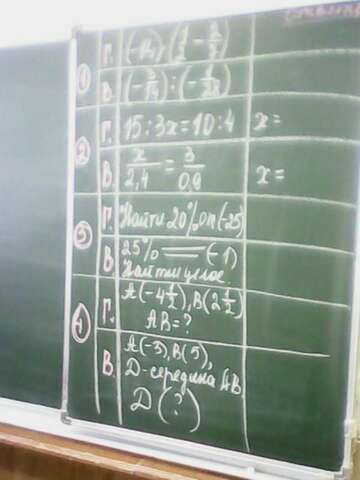 ① Г.
В. : (-
② Г. 15 : 3x = 10 : 4 x =
В. x/2,4 = 3/0,9 x =
③ Г. Найти 20% от (-25)
В. 25% (-1)
Найти целое.
④ Г. A(-4 1/2), B(2 1/2)
AB = ?
В. A(-3), B(5),
D-середина AB
D(?)